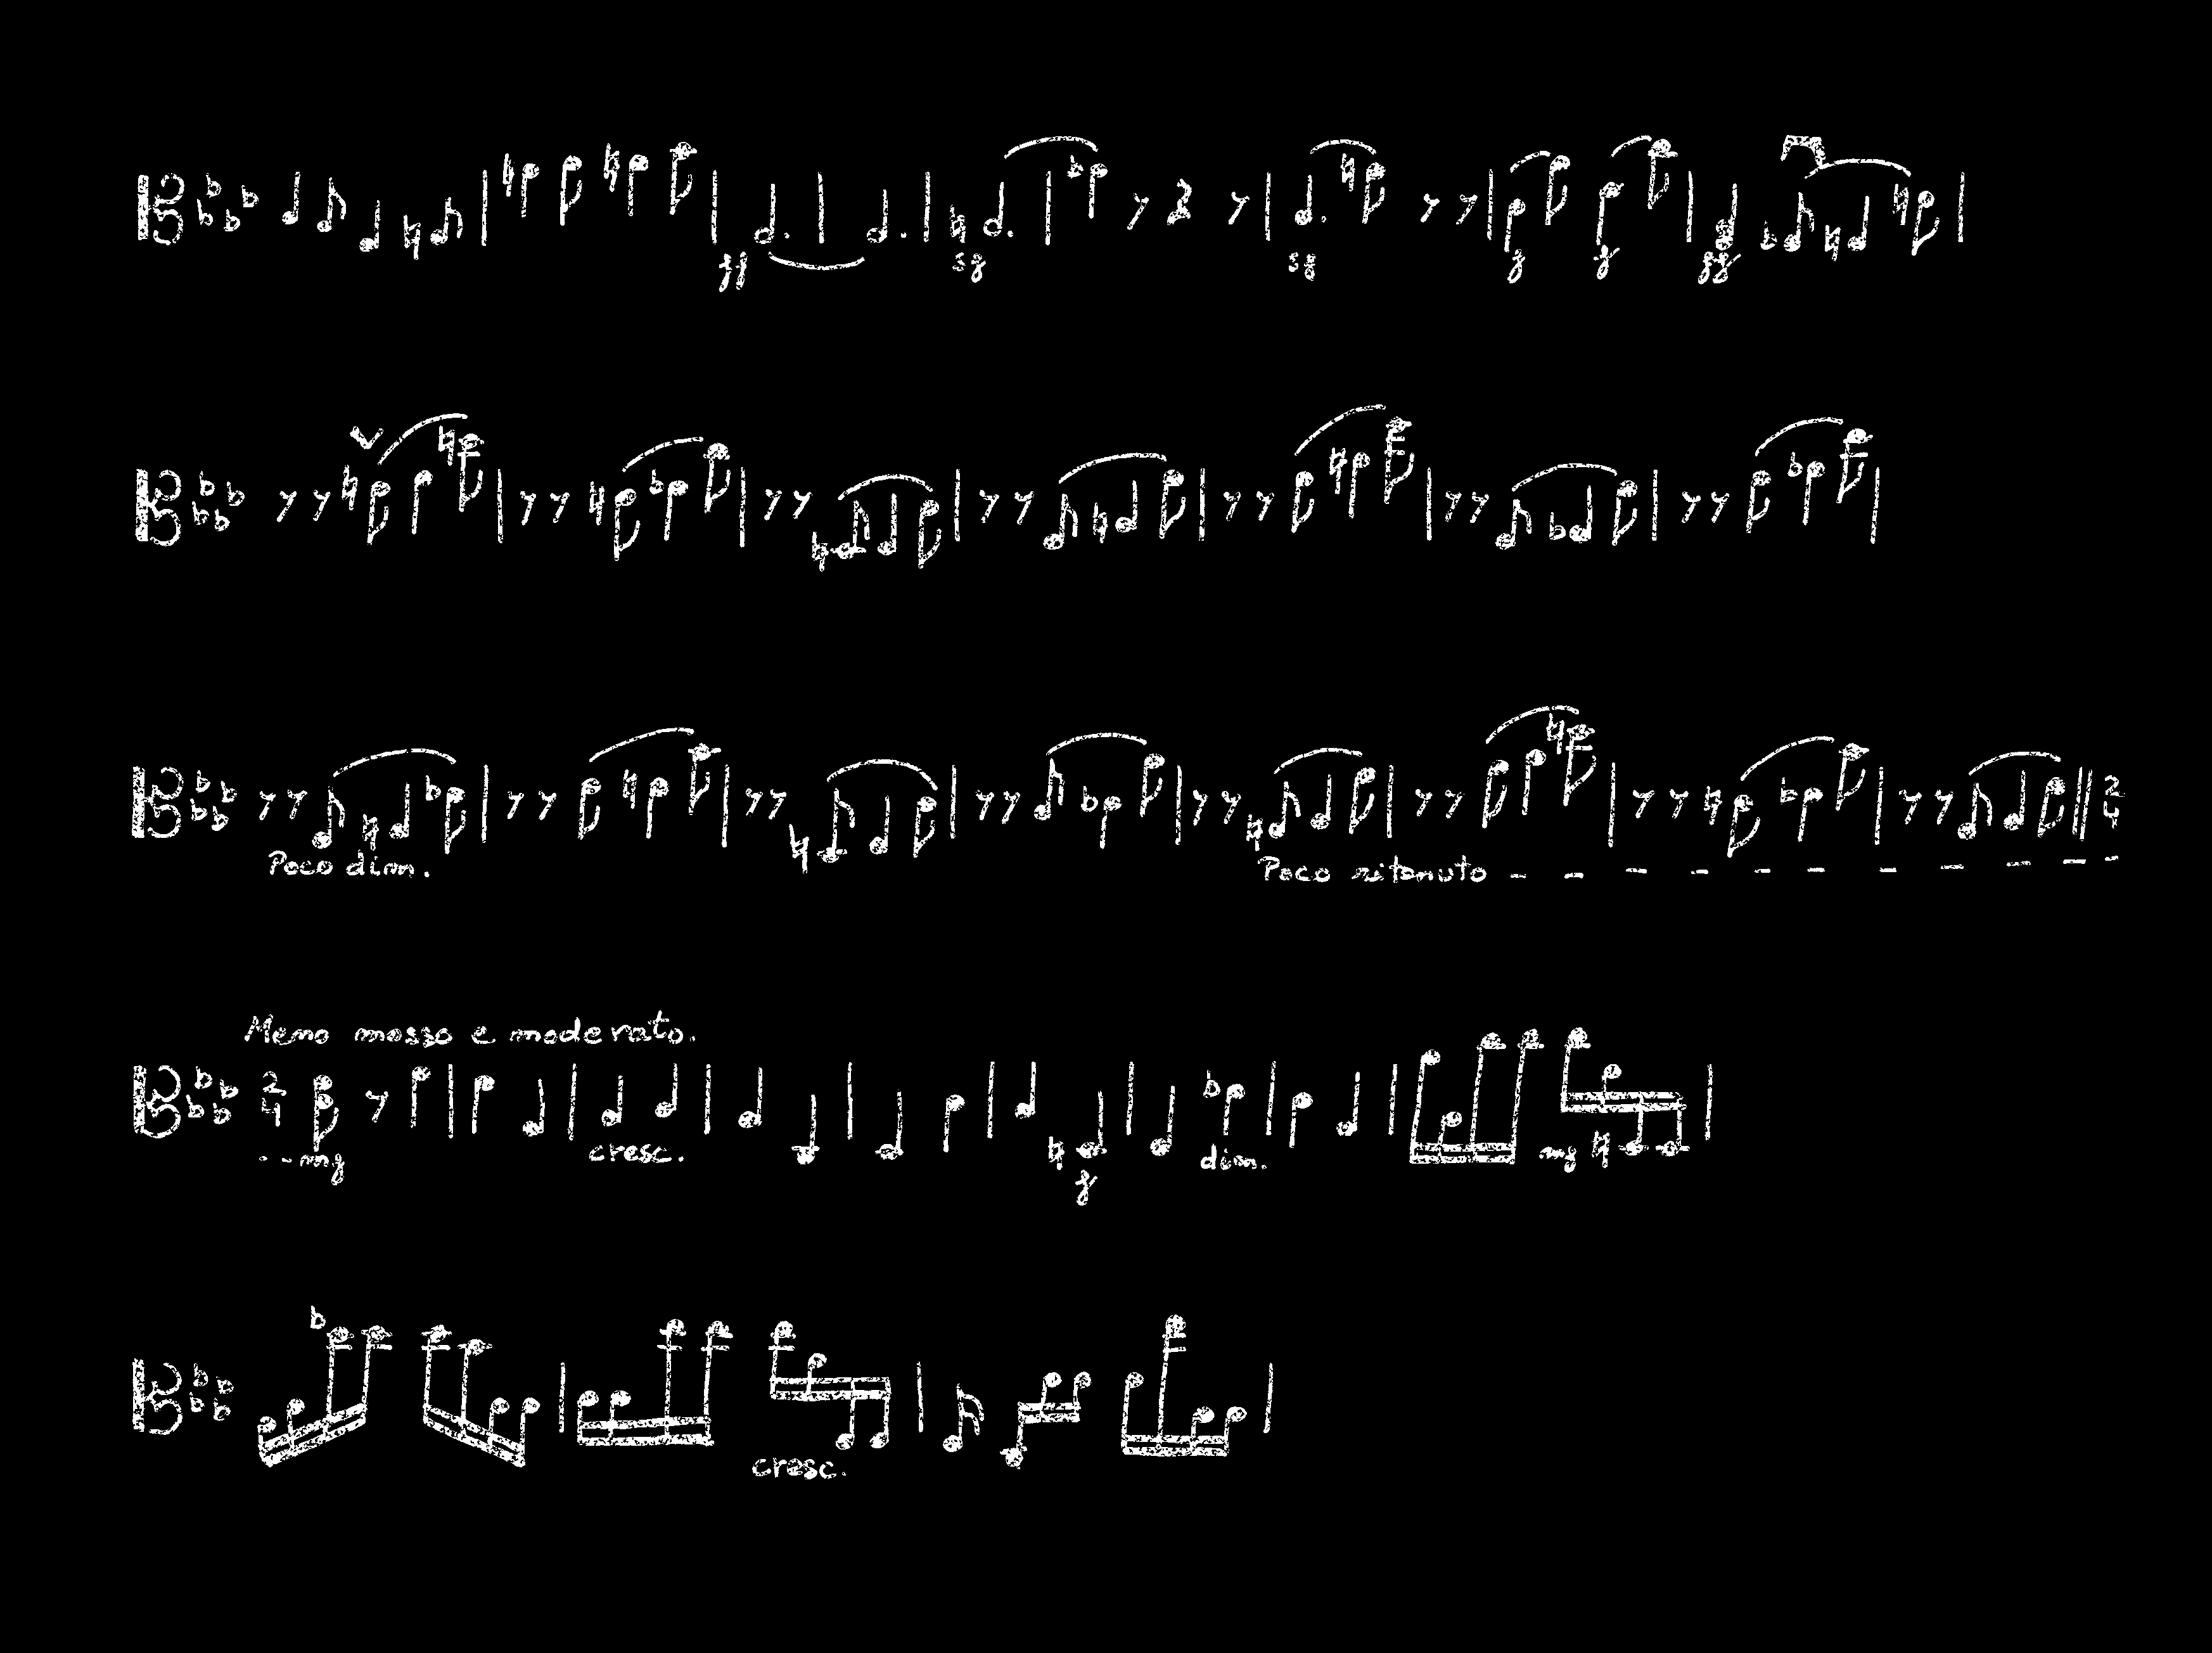 ff sf sf f f ff
Poco dim. Poco ritenuto
2
4
Meno mosso e moderato.
2
4
mf cresc. f dim. mf
cresc.